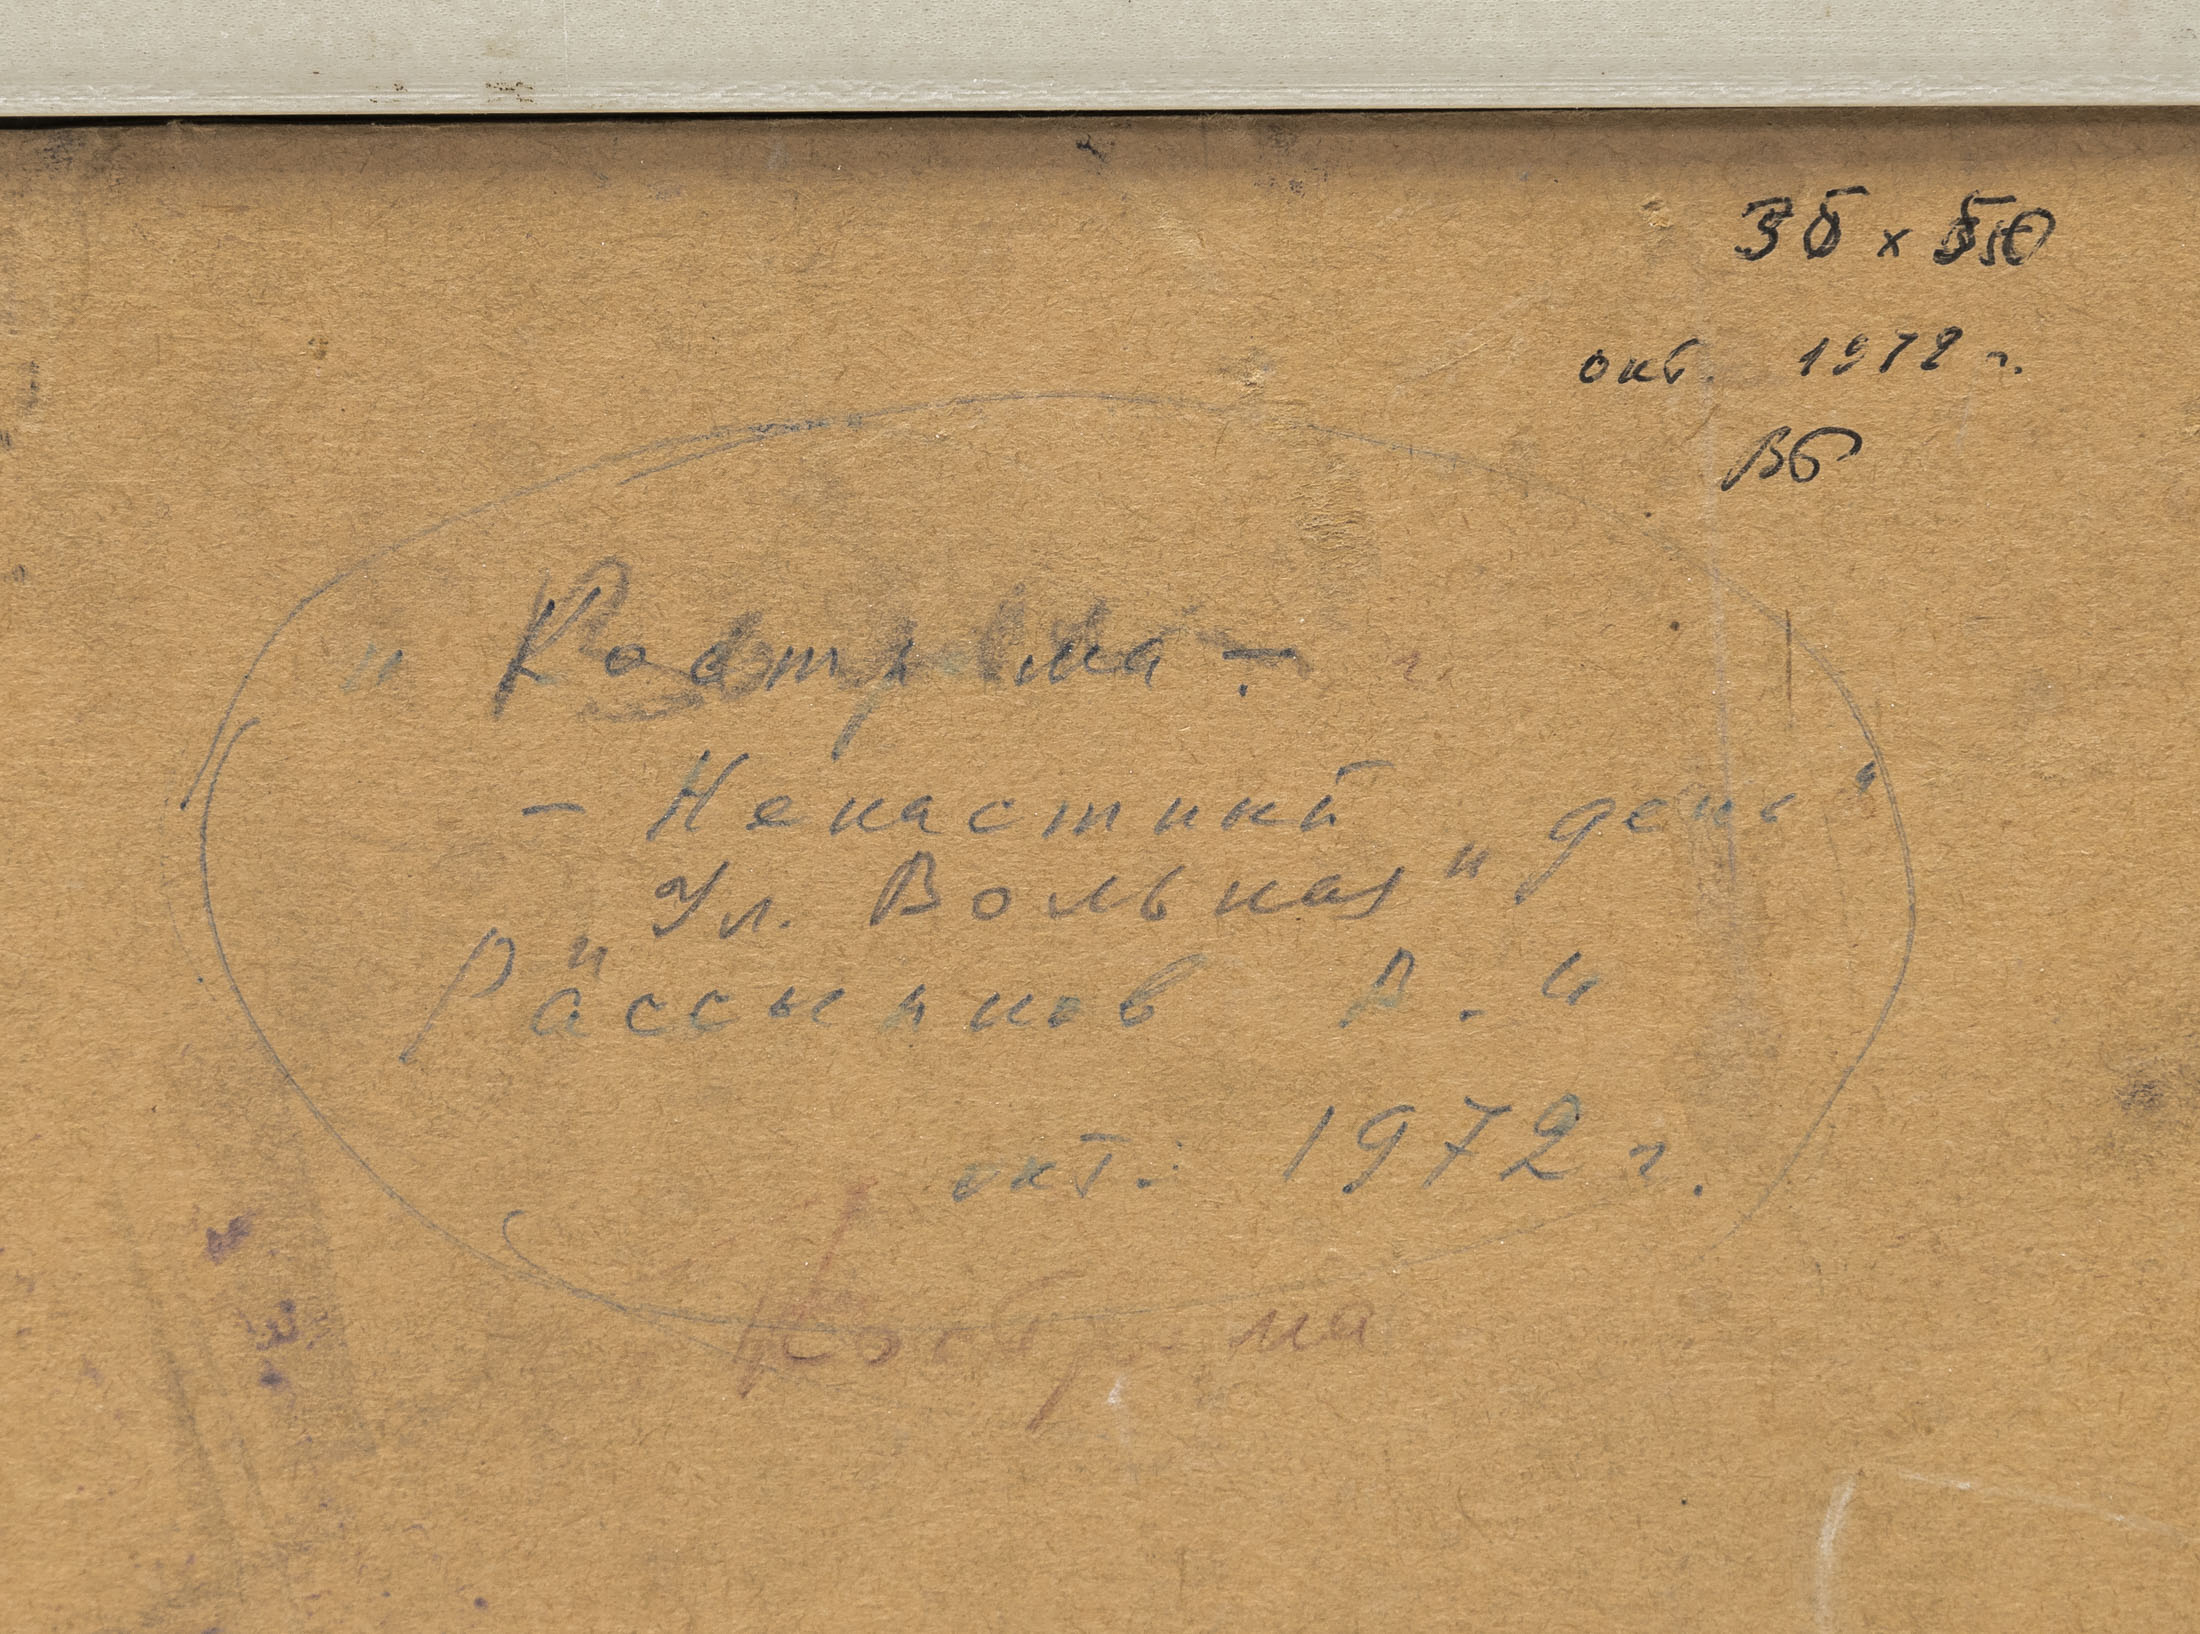 35 x 50
окт. 1972 г.
ВБ
"Кострома -
- Ненастный день"
"Ул. Вольная"
Рассыпнов В."
окт. 1972 г.
Кострома